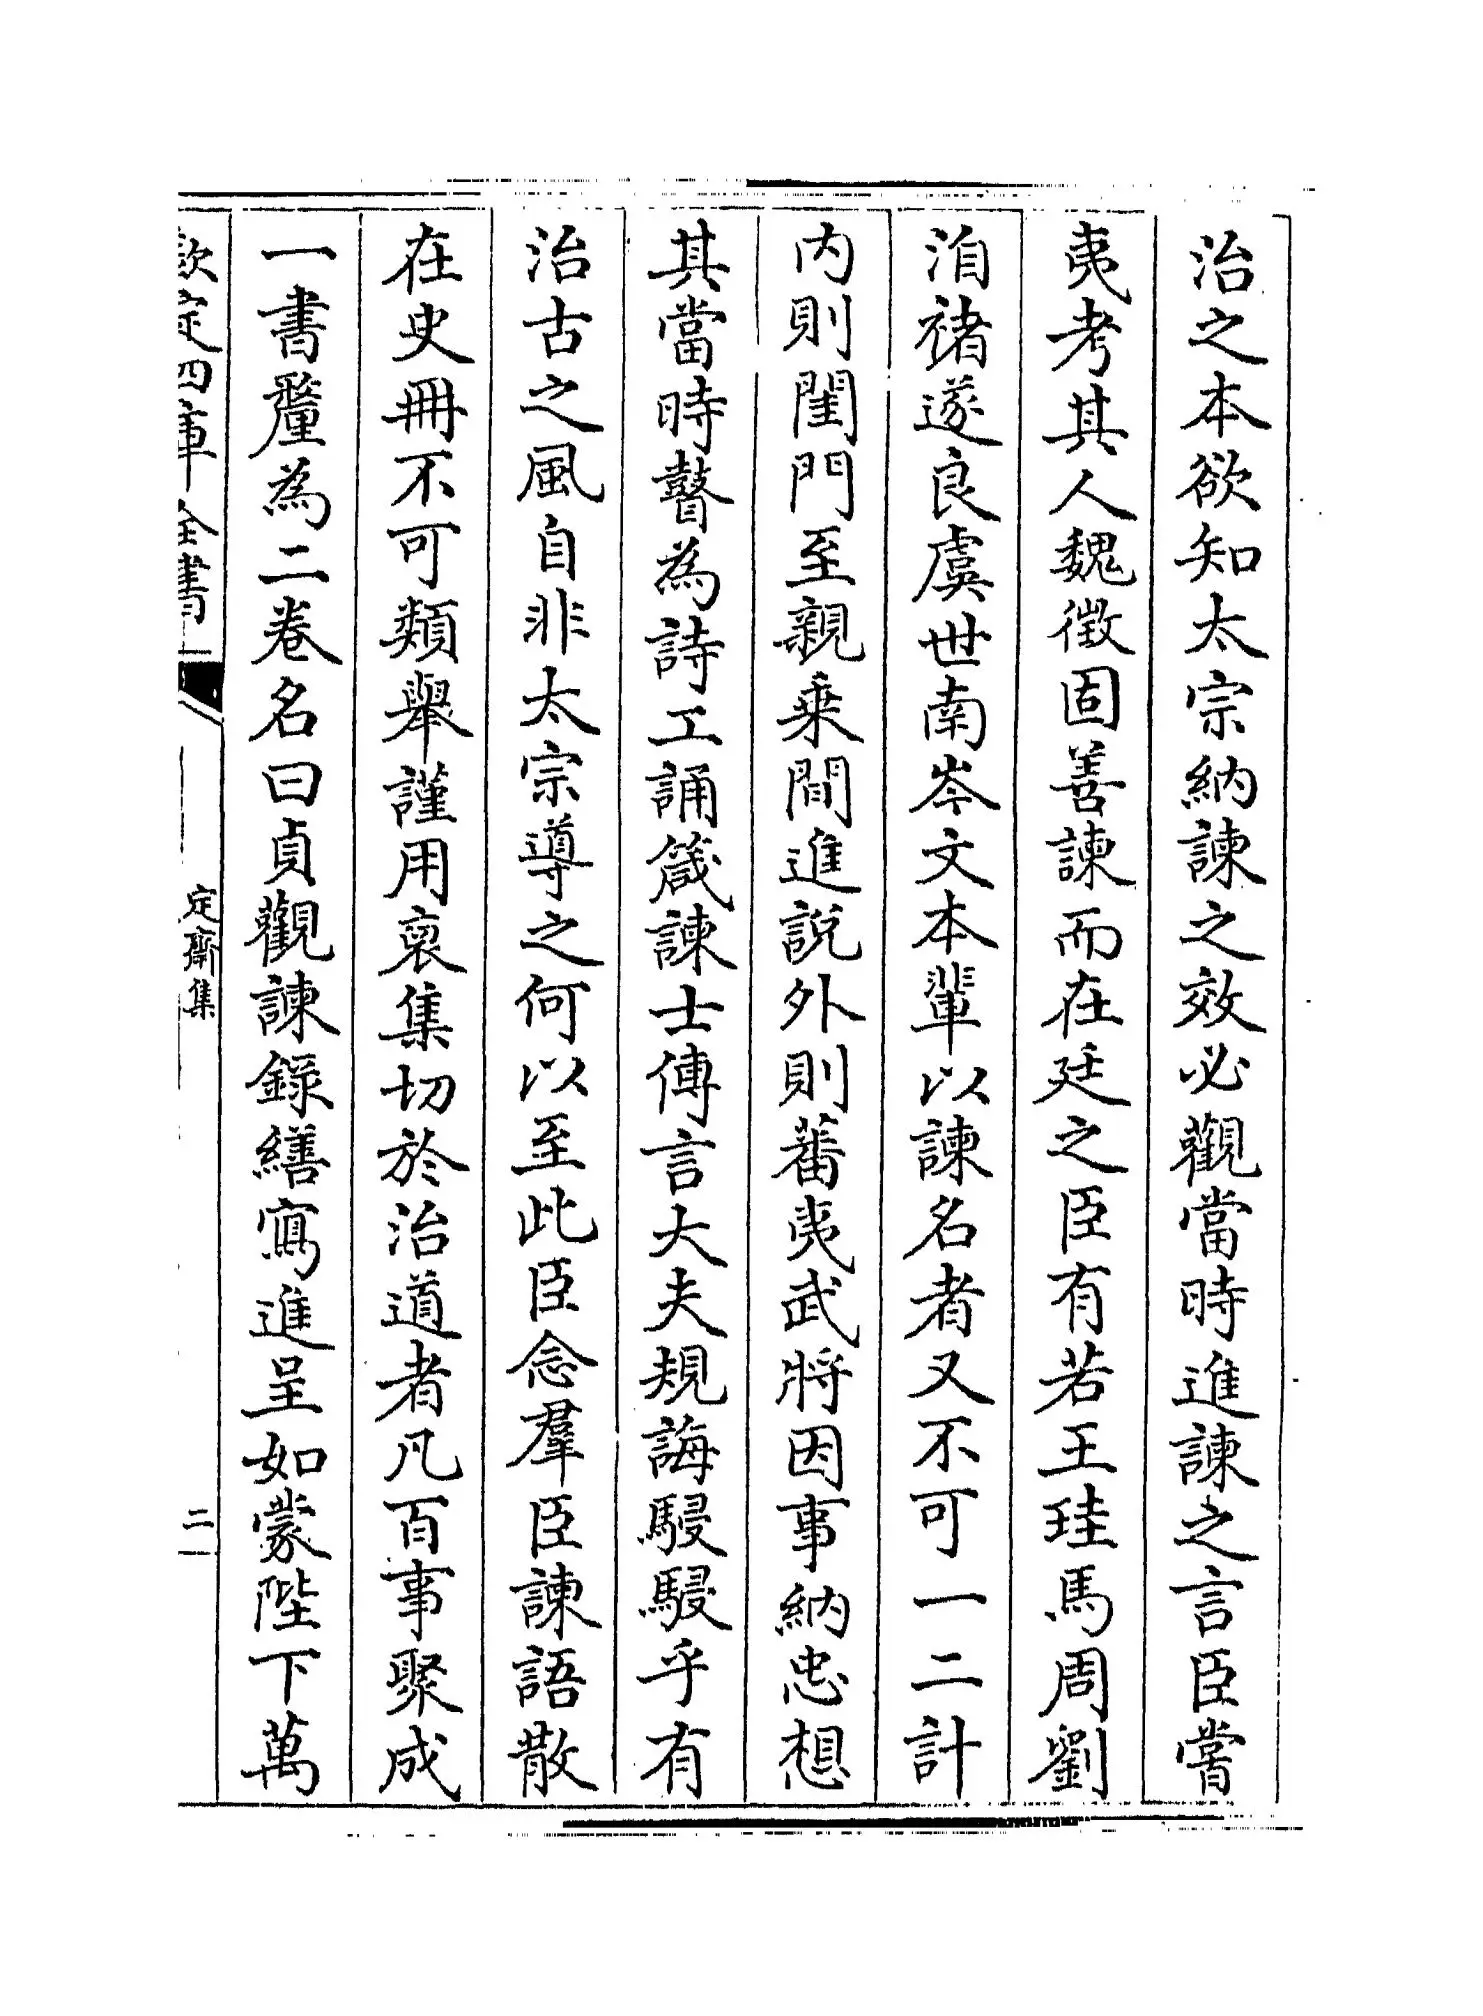 治之本欲知太宗納諫之效必觀當時進諫之言臣嘗
夷考其人魏徵固善諫而在廷之臣有若王珪馬周劉
洎禇遂良虞世南岑文本輩以諫名者又不可一二計
内則閨門至親乗間進説外則蕃夷武將因事納忠想
其當時瞽為詩工誦箴諫士傳言大夫規誨駸駸乎有
治古之風自非太宗導之何以至此臣念羣臣諫語散
在史冊不可類舉謹用裒集切於治道者凡百事聚成
一書釐為二卷名曰貞觀諫錄繕寫進呈如蒙陛下萬
欽定四庫全書
定齋集
二